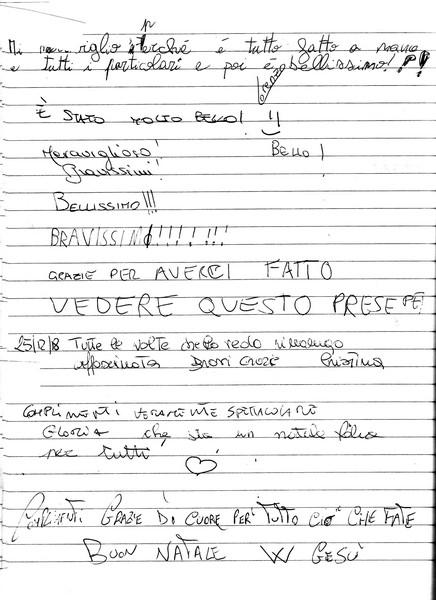 Mi riglio perché é tutto fatto a mano
e tutti i particolari e poi é bellissimo!!!
Lorenzo
È STATO MOLTO BELLO! !!
Meraviglioso! BELLO!
Bravissimi!
BELLISSIMO!!!
BRAVISSIMO!!!!!!!
GRAZIE PER AVERCI FATTO
VEDERE QUESTO PRESEPE!
25/12/18 Tutte le volte che lo vedo rimango
affascinata Cristina
COMPLIMENTI VERAMENTE SPETTACOLARE
GLORIA che sia un natale felice
per tutti
COMPLIMENTI GRAZIE DI CUORE PER TUTTO CIO' CHE FATE
BUON NATALE W GESÙ